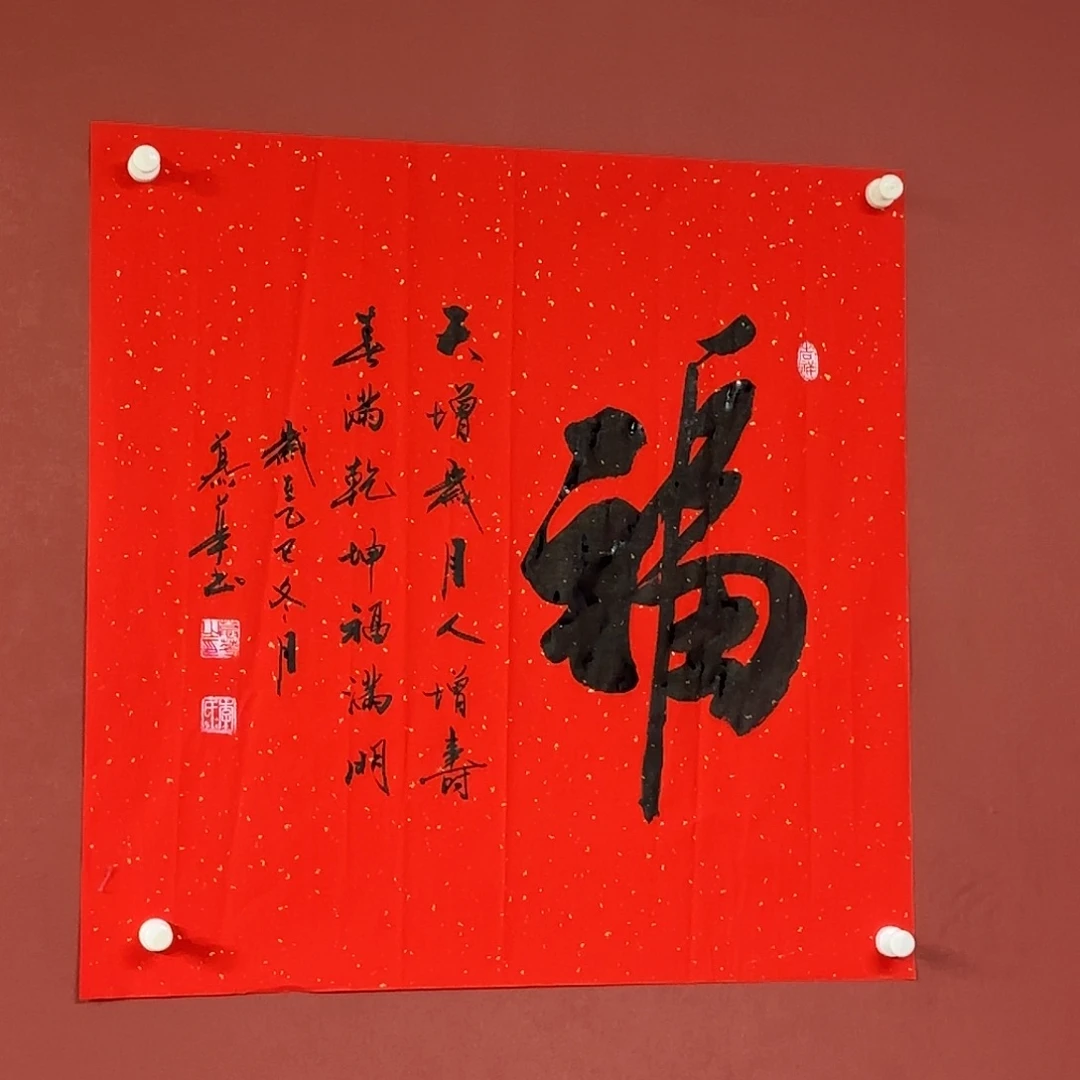 吉祥
福
天增歲月人增壽
春滿乾坤福滿門
歲在乙巳冬月
慕華书